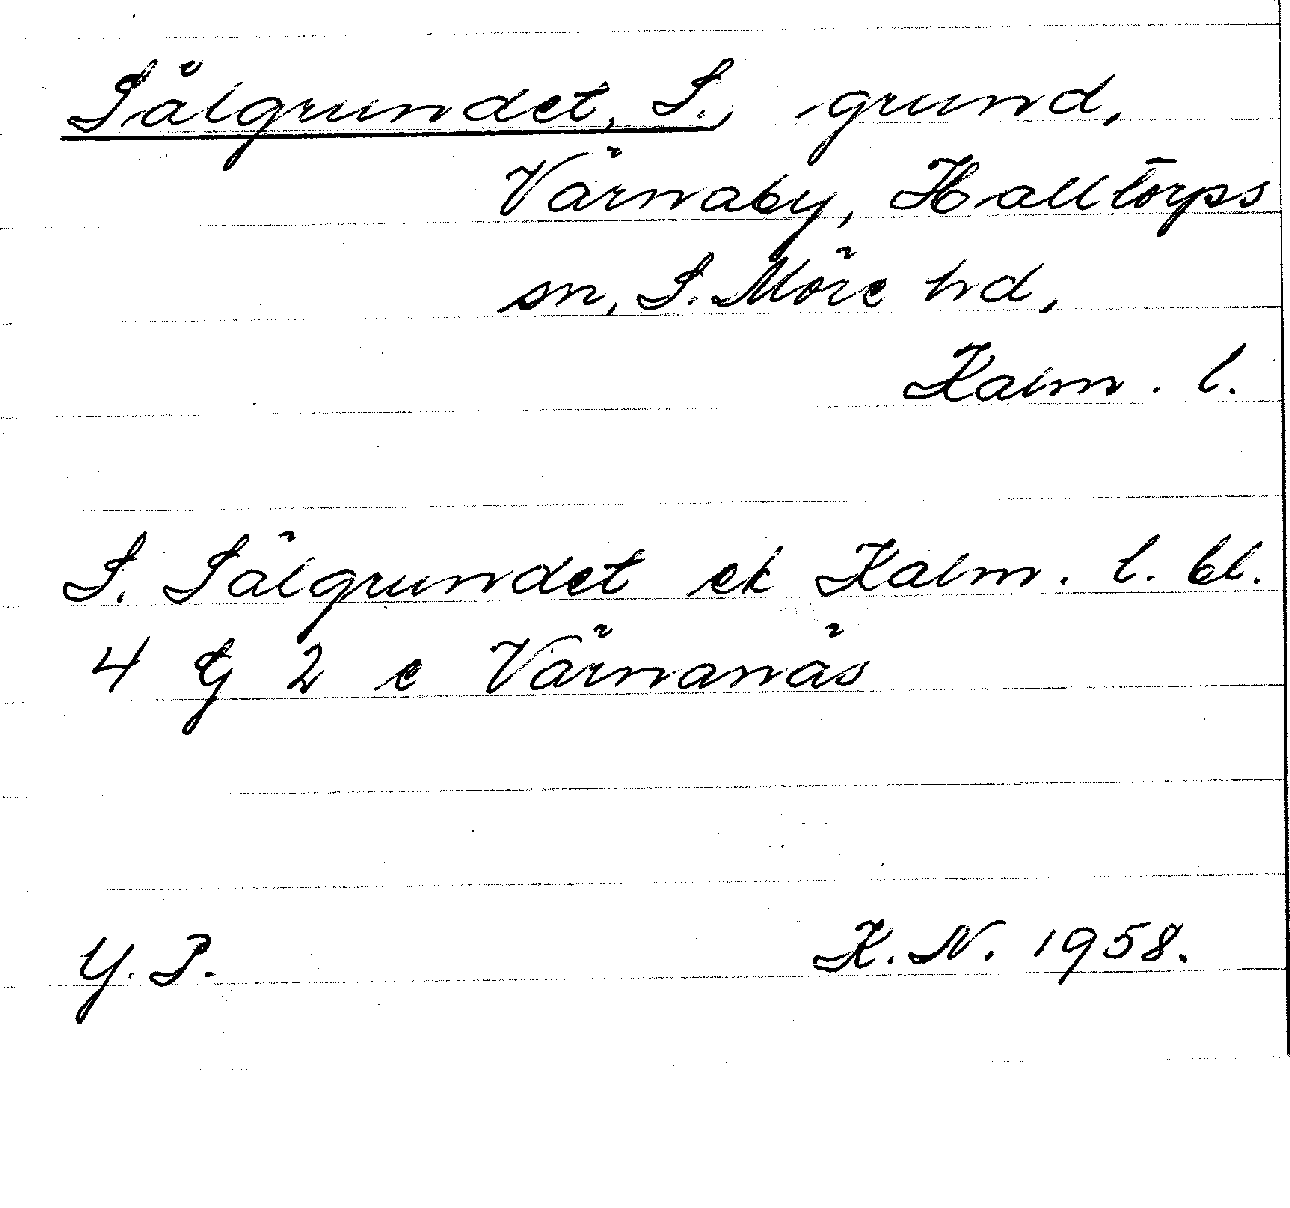 Sälgrundet, S., grund,
Värnaby, Halltorps
sn, S. Möre hd,
Kalm. l.
S. Sälgrundet ek Kalm. l. bl.
4 Ej 2 e Värnanäs
Y. P. K. N. 1958.